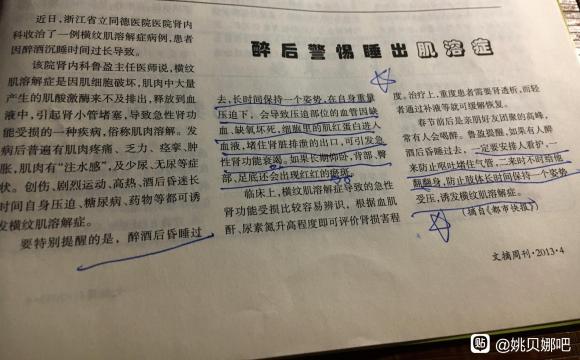 醉后警惕睡出肌溶症
近日,浙江省立同德医院医院肾内
科收治了一例横纹肌溶解症病例,患者
因醉酒沉睡时间过长导致。
该院肾内科鲁盈主任医师说,横纹
肌溶解症是因肌细胞破坏,肌肉中大量
产生的肌酸激酶来不及排出,释放到血
液中,引起肾小管堵塞,导致急性肾功
能受损的一种疾病,俗称肌肉溶解。发
病后普遍有肌肉疼痛、乏力、痉挛、肿
胀,肌肉有“注水感”,及少尿、无尿等症
状。创伤、剧烈运动、高热、酒后昏迷长
时间自身压迫、糖尿病、药物等都可诱
发横纹肌溶解症。
要特别提醒的是,醉酒后昏睡过
去,长时间保持一个姿势,在自身重量
压迫下,会导致压迫部位的血管因缺
血、缺氧坏死,细胞里的肌红蛋白进入
血液,堵住肾脏排泄的出口,可引发急
性肾功能衰竭。如果长期仰卧,背部、臀
部、足底还会出现红红的瘀斑。
临床上,横纹肌溶解症导致的急性
肾功能受损比较容易辨识,根据血肌
酐、尿素氮升高程度即可评价肾损害程
度。治疗上,重度患者需要肾透析,而轻
者通过补液等就可缓解恢复。
春节前后是亲朋好友团聚的高峰,
常有人会喝醉。鲁盈提醒,如果有人醉
酒后昏睡过去,一定要安排人看护,一
来防止呕吐堵住气管,二来时不时帮他
翻翻身,防止肢体长时间保持一个姿势
受压,诱发横纹肌溶解症。
(摘自《都市快报》)
文摘周刊·2013·4
贴 @姚贝娜吧